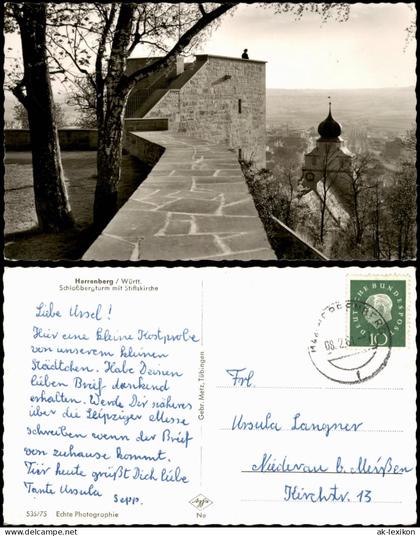 Herrenberg / Württ.
Schloßbergturm mit Stiftskirche
Liebe Ursel!
Hier eine kleine Kostprobe
von unserem kleinen
Städtchen. Habe Deinen
lieben Brief dankend
erhalten. Werde Dir näheres
über die Leipziger Messe
schreiben wenn der Brief
von zuhause kommt.
Für heute grüßt Dich liebe
Tante Ursula Sepp.
535/75 Echte Photographie
Gebr. Metz, Tübingen
Agfa
No
DEUTSCHE BUNDESPOST
10
HERRENBERG
08.2.6
Frl.
Ursula Langner
Niederau b. Meißen
Kirchstr. 13
www.ak-lexikon.de